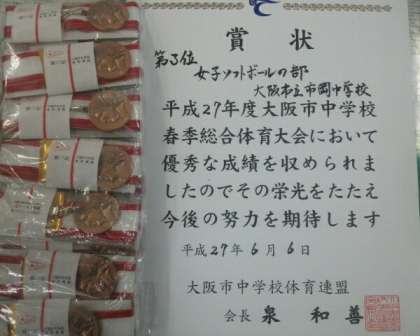 賞状
第3位
女子ソフトボールの部
大阪市立市岡中学校
平成27年度大阪市中学校
春季総合体育大会において
優秀な成績を収められま
したのでその栄光をたたえ
今後の努力を期待します
平成27年6月6日
大阪市中学校体育連盟
会長 泉 和善